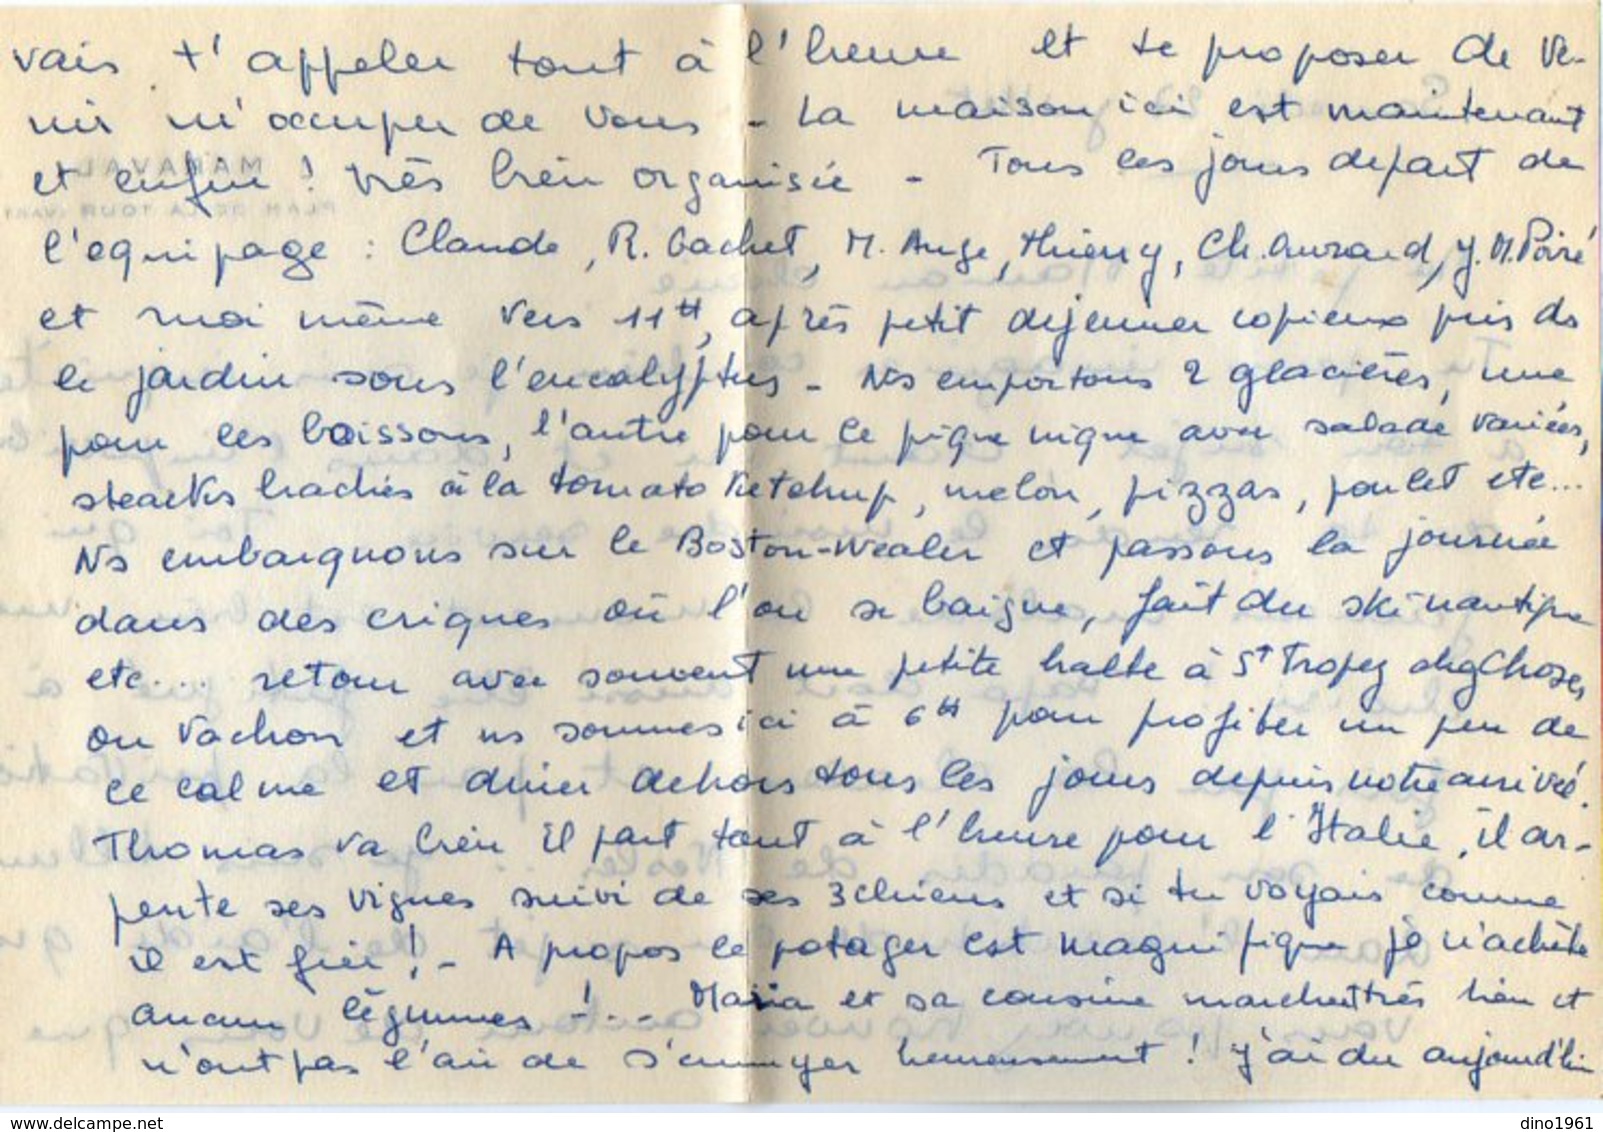 vais t'appeler tout à l'heure et te proposer de ve-
nir m'occuper de vous - La maison ici est maintenant
et enfin ! très bien organisée - Tous les jours depart de
l'equipage : Claude, R. Gachet, M. Ange, Thierry, Ch. Auraud, J. M. Poiré
et moi même vers 11H, après petit dejeuner copieux pris ds
le jardin sous l'eucalyptus - Ns emportons 2 glacières, une
pour les boissons, l'autre pour le pique nique avec salade variées,
steacks hachés à la tomato Ketchup, melon, pizzas, poulet etc...
Ns embarquons sur le Boston-Wealer et passons la journée
dans des criques où l'on se baigne, fait du ski nautique
etc.... retour avec souvent une petite halte à St Tropez chez Choses,
ou Vachon et ns sommes ici à 6H pour profiter un peu de
ce calme et diner dehors tous les jours depuis notre arrivée.
Thomas va bien il part tout à l'heure pour l'Italie, il ar-
pente ses vignes suivi de ses 3 chiens et si tu voyais comme
il est fier ! - A propos le potager est magnifique je n'achète
aucun légumes - !.. Maria et sa cousine marchent très bien et
n'ont pas l'air de s'ennuyer heureusement ! J'ai du aujourd'hui
MARAVAL
PLAN DE LA TOUR (VAR)
www.delcampe.net
dino1961